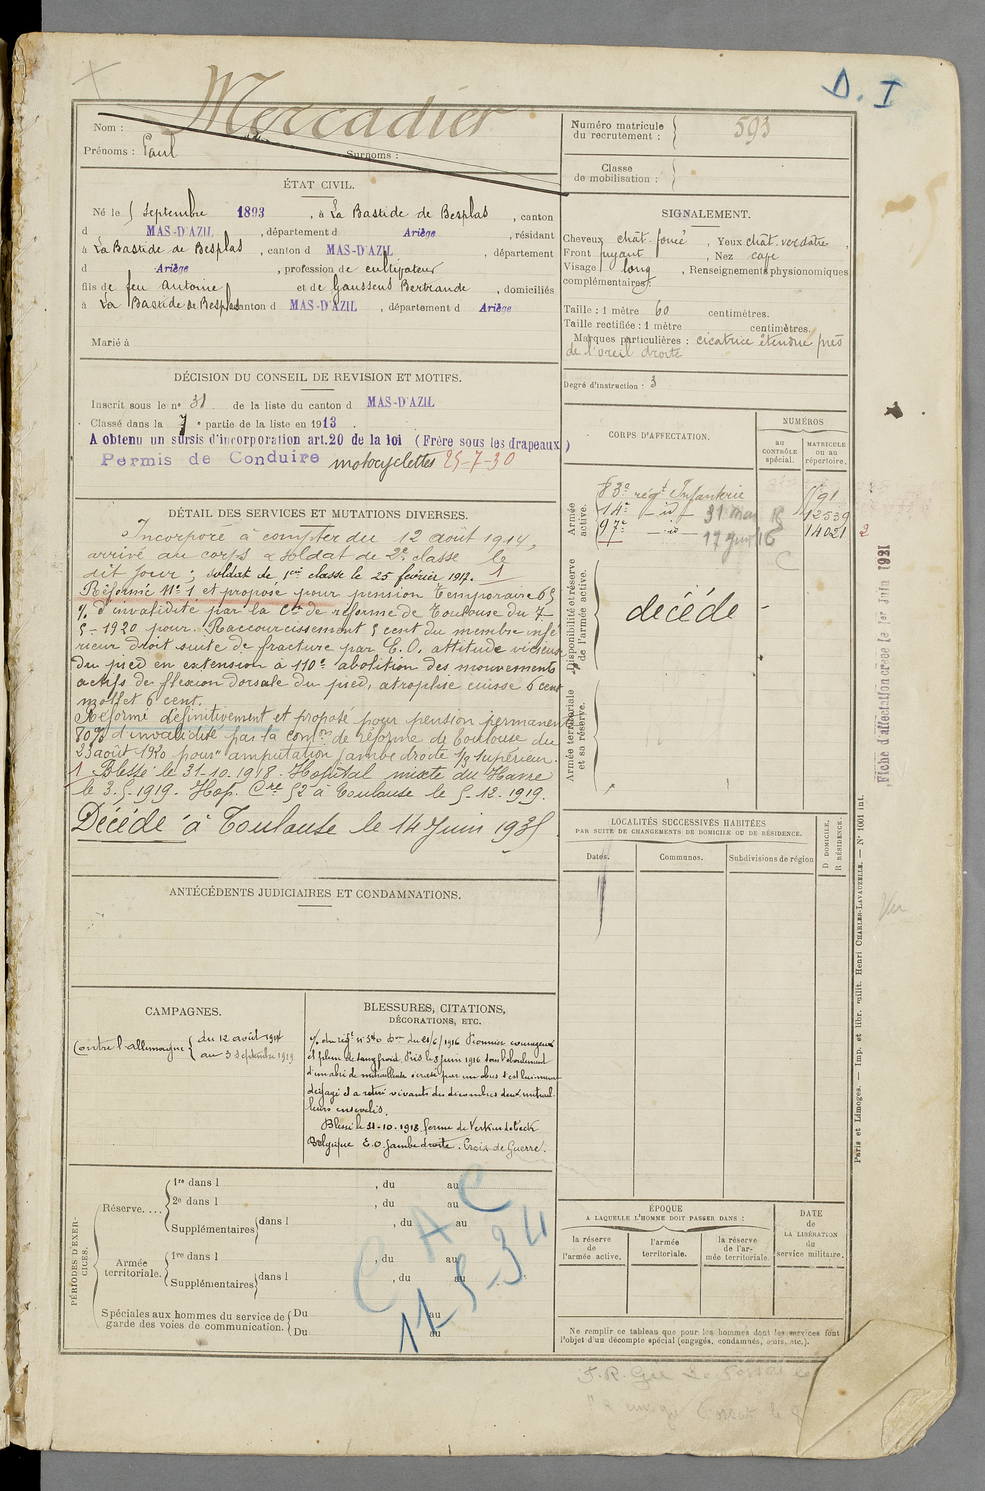 D. I
Nom : Mercadier
Prénoms : Paul Surnoms :
Numéro matricule
du recrutement : 593
Classe
de mobilisation :
ÉTAT CIVIL.
Né le 5 Septembre 1893, à La Bastide de Besplas, canton
d MAS-D'AZIL, département d Ariège, résidant
à La Bastide de Besplas, canton d MAS-D'AZIL, département
d Ariège, profession de cultivateur
fils de feu Antoine et de Gaussens Bertrande, domiciliés
à La Bastide de Besplas canton d MAS-D'AZIL, département d Ariège
Marié à
SIGNALEMENT.
Cheveux chât. foncé, Yeux chât. verdâtre,
Front fuyant, Nez cave
Visage long, Renseignements physionomiques
complémentaires :
Taille : 1 mètre 60 centimètres.
Taille rectifiée : 1 mètre centimètres.
Marques particulières : cicatrice étendue près
de l'oreil droite
Degré d'instruction : 3
DÉCISION DU CONSEIL DE REVISION ET MOTIFS.
Inscrit sous le n° 31 de la liste du canton d MAS-D'AZIL
Classé dans la 7e partie de la liste en 1913.
A obtenu un sursis d'incorporation art.20 de la loi (Frère sous les drapeaux)
Permis de Conduire motocyclettes 25-7-30
DÉTAIL DES SERVICES ET MUTATIONS DIVERSES.
Incorporé à compter du 12 août 1914,
arrivé au corps & soldat de 2e classe le
dit jour ; soldat de 1ère classe le 25 février 1917. 1
Réformé N° 1 et proposé pour pension temporaire 65
% d'invalidité par la Con de réforme de Toulouse du 7-
5-1920 pour. Raccourcissement 5 cent du membre infé
rieur droit suite de fracture par E.O, attitude vicieuse
du pied en extension à 110° abolition des mouvements
actifs de flexion dorsale du pied, atrophie cuisse 6 cent
mollet 6 cent.
Réformé définitivement et proposé pour pension permanente
70% d'invalidité par la comon de réforme de Toulouse du
23 août 1920 pour "amputation jambe droite 1/3 supérieur.
1 Blessé le 31-10-1918. Hopital mixte du Havre
le 3.5-1919. Hop. Cre 52 à Toulouse le 5-12.1919.
Décédé à Toulouse le 14 Juin 1935
CORPS D'AFFECTATION.
NUMÉROS
au
CONTRÔLE
spécial.
MATRICULE
ou au
répertoire.
Armée
active.
83e régt Infanterie
14e - id - 31 mai 15 12539
97e - id - 17 juin 16 14021 2
Disponibilité et réserve
de l'armée active.
décédé -
Armée territoriale
et sa réserve.
Fiche d'affectation créée le 1er Juin 1921
LOCALITÉS SUCCESSIVES HABITÉES
PAR SUITE DE CHANGEMENTS DE DOMICILE OU DE RÉSIDENCE.
Dates.
Communes.
Subdivisions de région
D DOMICILE.
R RÉSIDENCE.
ANTÉCÉDENTS JUDICIAIRES ET CONDAMNATIONS.
CAMPAGNES.
Contre l'allemagne { du 12 août 1914
au 3 Septembre 1919
BLESSURES, CITATIONS,
DÉCORATIONS, ETC.
% du régt n° 340 du 21/6/1916 Pionnier courageux
et plein de sang froid. Pris le 8 juin 1916 sous l'éboulement
d'un abri de mitrailleuse écrasé par un obus s'est lui-même
dégagé et a retiré vivants des décombres deux mitrail
leurs ensevelis.
Blessé le 31-10-1918 ferme de
Belgique E.O jambe droite. Croix de Guerre.
PÉRIODES D'EXER-
CICES.
Réserve....
1re dans l , du au
2e dans l , du au
Supplémentaires dans l , du au
Armée
territoriale.
1re dans l , du au
Supplémentaires dans l , du au
Spéciales aux hommes du service de
garde des voies de communication.
Du au
Du au
C A C
11-5-34
ÉPOQUE
A LAQUELLE L'HOMME DOIT PASSER DANS :
la réserve
de
l'armée active.
l'armée
territoriale.
la réserve
de l'ar-
mée territoriale.
DATE
de
LA LIBÉRATION
du
service militaire.
Ne remplir ce tableau que pour les hommes dont les services font
l'objet d'un décompte spécial (engagés, condamnés, omis, etc.).
Paris et Limoges. — Imp. et libr. milit. Henri CHARLES-LAVAUZELLE. — N° 1001 int.